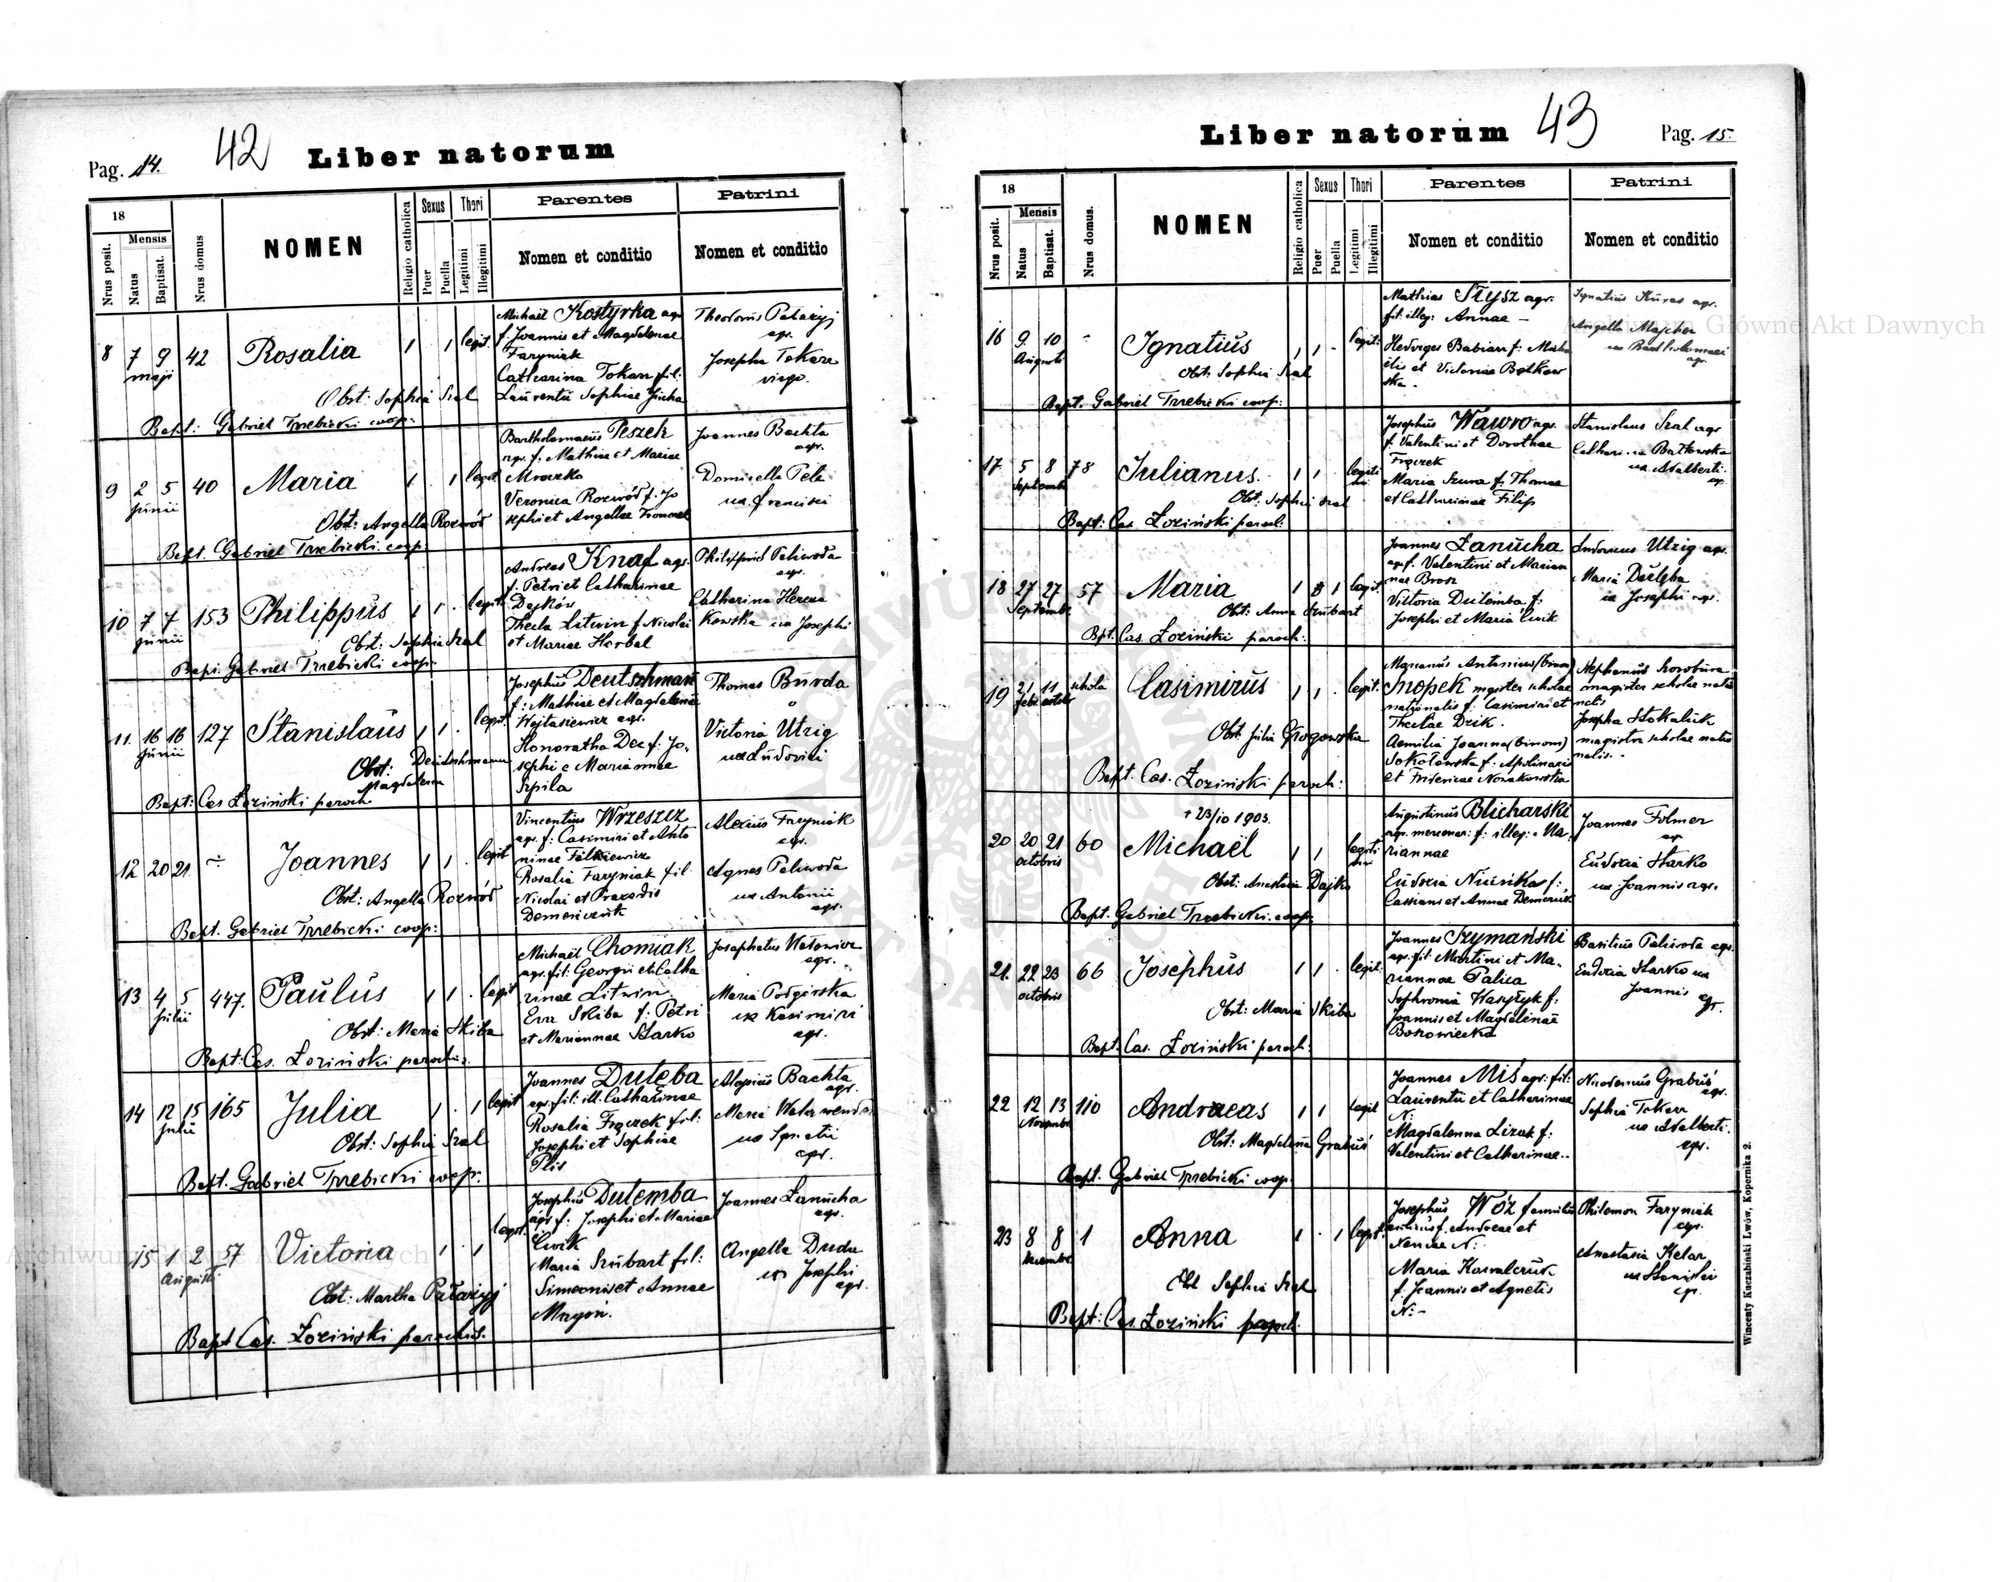 Pag. 14.
42
Liber natorum
18
Mensis
Nrus posit.
Natus
Baptisat.
Nrus domus
NOMEN
Religio catholica
Sexus
Puer
Puella
Thori
Legitimi
Illegitimi
Parentes
Nomen et conditio
Patrini
Nomen et conditio
8 7 9 maji 42 Rosalia 1 1 legit.
Obst: Sophia Szal
Bapt: Gabriel Trzebicki coop:
Michaël Kostyrka agr.
f. Joannis et Magdalenae
Faryniak
Catharina Tokar fil:
Laurentii Sophiae
Theodorus Pałazyj
agr.
Josepha Tokarz
virgo.
9 2 5 junii 40 Maria 1 1 legit.
Obst: Angella Rozwód
Bapt. Gabriel Trzebicki coop:
Bartholomaeus Peszek
agr. f. Mathiae et Mariae
Mroczko
Veronica Rozwód f. Jo
sephi et Angellae
Joannes Bachta
agr.
Domicella Pela
ux. Francisci
10 7 7 junii 153 Philippus 1 1 . legit.
Obst: Sophia Szal
Bapt. Gabriel Trzebicki coop:
Andreas Knaf agr.
f. Petri et Catharinae
Dajków
Thecla Litwin f. Nicolai
et Mariae Harbal
Philippus Paliwoda
agr.
Catharina
ux Josephi
11 16 16 junii 127 Stanislaus 1 1 . legit.
Obst: Magdalena Deutschmann
Bapt: Cas Łoziński paroch
Josephus Deutschman
f: Mathiae et Magdalenae
Wojtasiewicz agr.
Honoratha Dec f: Jo-
sephi e Mariannae
Szpila
Thomas Burda
"
Victoria Utzig
ux Ludovici
12 20 21 ÷ Joannes 1 1 . legit
Obst: Angella Rozwód
Bapt. Gabriel Trzebicki coop:
Vincentius Wrzeszcz
agr. f: Casimiri et Anto
ninae Fałkiewicz
Rosalia Faryniak fil.
Nicolai et Praxedis
Demeńczuk
Alexius Faryniak
agr.
Agnes Paliwoda
ux Antonii
agr.
13 4 5 julii 447. Paulus 1 1 . legit
Obst: Maria Skiba
Bapt: Cas. Łoziński parochus.
Michaël Chomiak
agr. fil: Georgii et Catha
rinae Litwin
Eva Skiba f: Petri
et Mariannae Starko
Josaphatus
agr.
Maria Podgórska
ux Kasimiri
agr.
14 12 15 julii 165 Julia 1 . 1 legit
Obst: Sophia Szal
Bapt. Gabriel Trzebicki coop.
Joannes Dulęba
agr. fil: ill. Catharinae
Rosalia Frączek fil:
Josephi et Sophiae
Plis
Aloysius Bachta
agr.
Maria
ux Ignatii
agr.
15 1 2 Augusti 57 Victoria 1 . 1 legit.
Obst: Martha Pałazyj
Bapt Cas. Łoziński parochus.
Josephus Dulemba
agr f: Josephi et Mariae
Ćwik
Maria Szubart fil:
Simeonis et Annae
Magoń.
Joannes Łanucha
agr.
Angella Duda
ux Josephi
agr.
Liber natorum
43
Pag. 15.
18
Mensis
Nrus posit.
Natus
Baptisat.
Nrus domus.
NOMEN
Religio catholica
Sexus
Puer
Puella
Thori
Legitimi
Illegitimi
Parentes
Nomen et conditio
Patrini
Nomen et conditio
16 9 10 Augusti - Ignatius 1 1 - legit:
Obst: Sophia Szal
Bapt. Gabriel Trzebicki coop:
Mathias Stysz agr.
fil: illeg: Annae -
Hedviges Babiarz f: Micha
ëlis et Victoriae Bołkow
ska -
Ignatius Kuras agr.
Angella Majcher
ux Bartholomaei
agr.
17 5 8 Septembr 78 Julianus 1 1 . legiti
mi
Obst: Sophia Szal
Bapt: Cas Łoziński paroch:
Josephus Wawro agr.
f. Valentini et Dorotheae
Frączek
Maria Szura f: Thomae
et Catharinae Filip
Stanislaus Szal agr
Catharina Bołkowska
ux Adalberti
agr.
18 27 27 Septembr 57 Maria 1 1 legit.
Obst: Anna Szubart
Bpt. Cas. Łoziński paroch:
Joannes Łanucha
agr f. Valentini et Marian
nae Broż
Victoria Dulemba f:
Josephi et Maria Ćwik
Ludovicus Utzig agr.
Maria Dulęba
ux Josephi agr.
19 21 febr. 11 octobr schola Casimirus 1 1 . legit.
Obst. Julia Głogowska
Bapt. Cas. Łoziński paroch:
Marianus Antonius (binom)
Snopek magister scholae
nationalis f. Casimiri et
Theclae Dzik.
Aemilia Joanna (binom)
Sokołowska f: Apolinaris
et Fridericae Nowakowska
Stephanus Korobura
magister scholae natio
nalis
Josepha Stokaluk
magistra scholae natio
nalis.
† 23/10 1903.
20 20 21 octobris 60 Michaël 1 1 legiti
mi
Obst: Anastasia Dajko
Bapt. Gabriel Trzebicki coop:
Augustinus Blicharski
agr. mercenar: f: illeg: Ma-
riannae
Eudoxia Niunka f:
Cassiani et Annae Demeńczuk
Joannes Folmer
agr
Eudoxia Starko
ux Joannis agr.
21. 22 23 octobris 66 Josephus 1 1 . legit.
Obst: Maria Skiba
Bapt. Cas. Łoziński paroch:
Joannes Szymański
agr. fil: Martini et Ma-
riannae Palica
Sophronia Kasyłyk f:
Joannis et Magdalenae
Borowiecka
Basilius Paliwoda agr.
Eudoxia Starko ux
Joannis agr.
22 12 13 Novembr 110 Andreas 1 1 legit
Obst: Magdalena Grabuś
Bapt. Gabriel Trzebicki coop
Joannes Miś agr. fil:
Laurentii et Catharinae
N:
Magdalenna Lizak f:
Valentini et Catharinae..
Nicodemus Grabuś
agr.
Sophia Tokarz
ux Adalberti.
agr.
23 8 8 1 Anna 1 . 1 legit.
Obst Sophia Szal
Bapt: Cas Łoziński paroch.
Josephus Wóż famulus
f. Andreae et
N:
Maria Kowalczuk
f. Joannis et Agnetis
N: -
Philemon Faryniak
agr.
Anastasia Kelar
ux Stanislai
agr.
Wincenty Kuczabiński Lwów, Kopernika 2.
Archiwum Główne Akt Dawnych
Archiwum Główne Akt Dawnych
ARCHIWUM GŁÓWNE AKT DAWNYCH